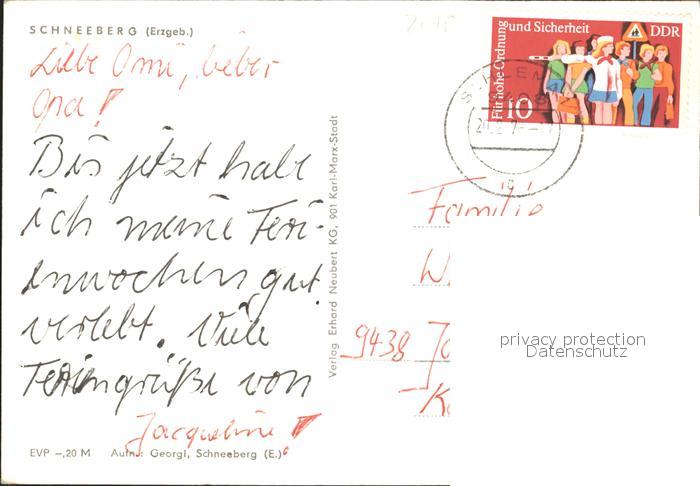 SCHNEEBERG (Erzgeb.)
Liebe Omi, lieber
Opa!
Bis jetzt habe
ich meine Feri-
enwochen gut
verlebt. Viele
Feriengrüße von
Jacqueline!
EVP –,20 M Aufn.: Georgi, Schneeberg (E.)
Verlag Erhard Neubert KG, 901 Karl-Marx-Stadt
Für hohe Ordnung und Sicherheit
DDR
10
Familie
9438
privacy protection
Datenschutz